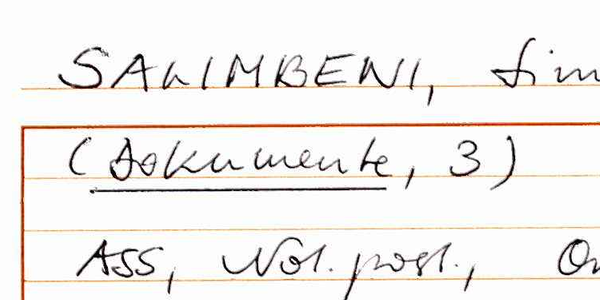 SALIMBENI, Sim
(Dokumente, 3)
ASS, Not. post.,